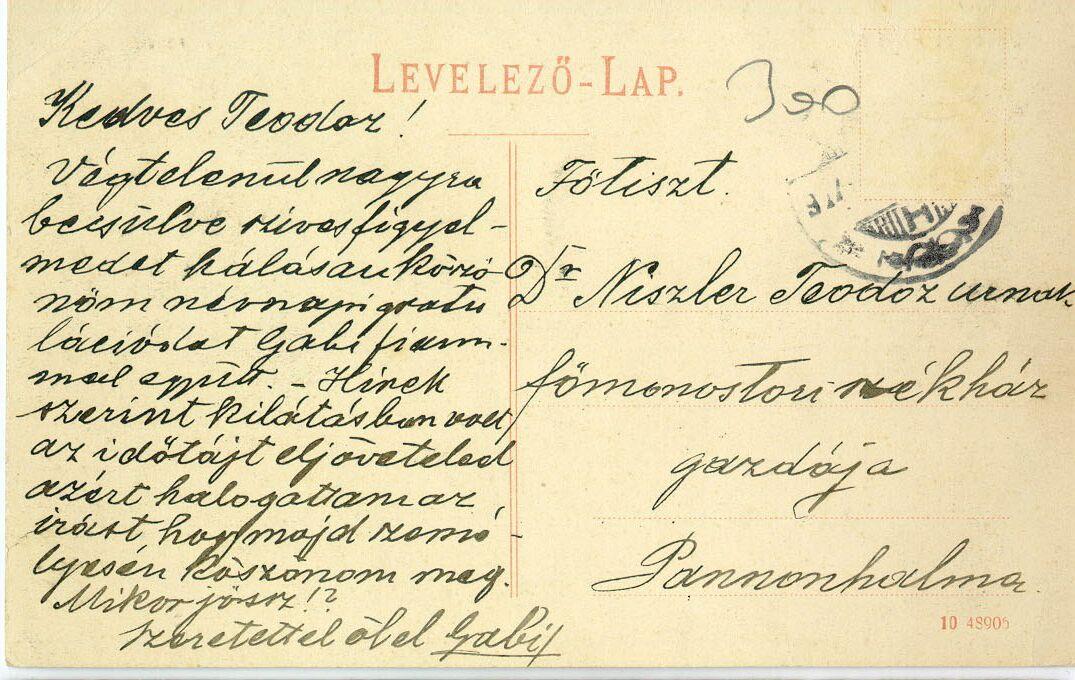 LEVELEZŐ-LAP.
Kedves Teodor!
Végtelenül nagyra
becsülve szives figyel-
medet hálásan köszö
nöm névnapi gratu
lációdat Gabi fiam-
mal együtt. - Hirek
szerint kilátásban volt
az időtájt eljöveteled
azért halogattam az
irást hogy majd szemé-
lyesen köszönöm meg.
Mikor jössz!?
Szeretettel ölel Gabi
300
Főtiszt.
Dr Niszler Teodoz urnak
főmonostori székház
gazdája
Pannonhalma
10 48905